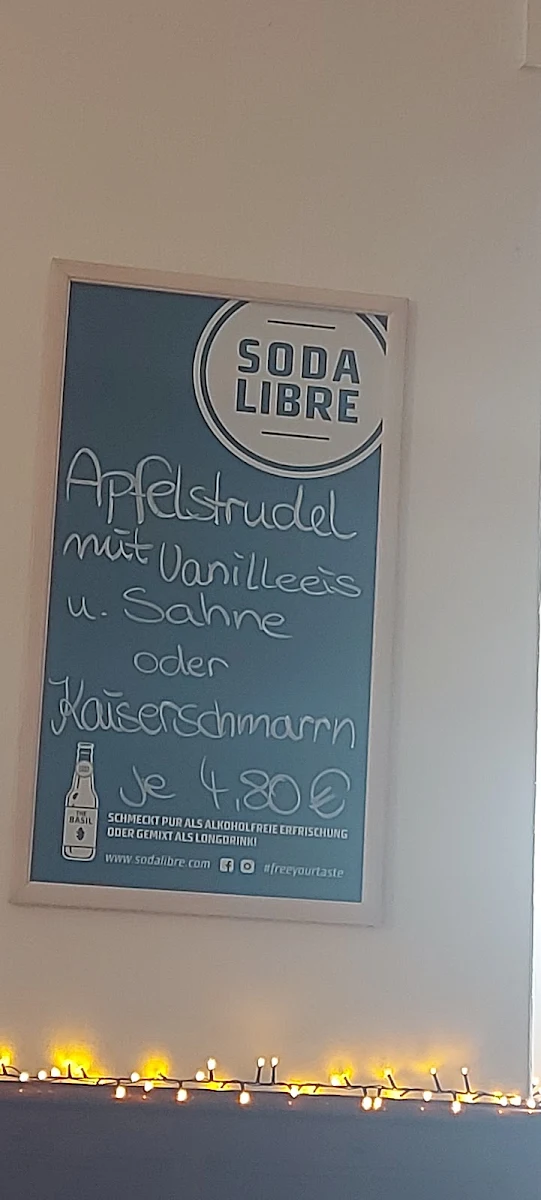 SODA
LIBRE
Apfelstrudel
mit Vanilleeis
u. Sahne
oder
Kaiserschmarrn
Je 4,80 €
THE
BASIL
SCHMECKT PUR ALS ALKOHOLFREIE ERFRISCHUNG
ODER GEMIXT ALS LONGDRINK!
www.sodalibre.com #freeyourtaste